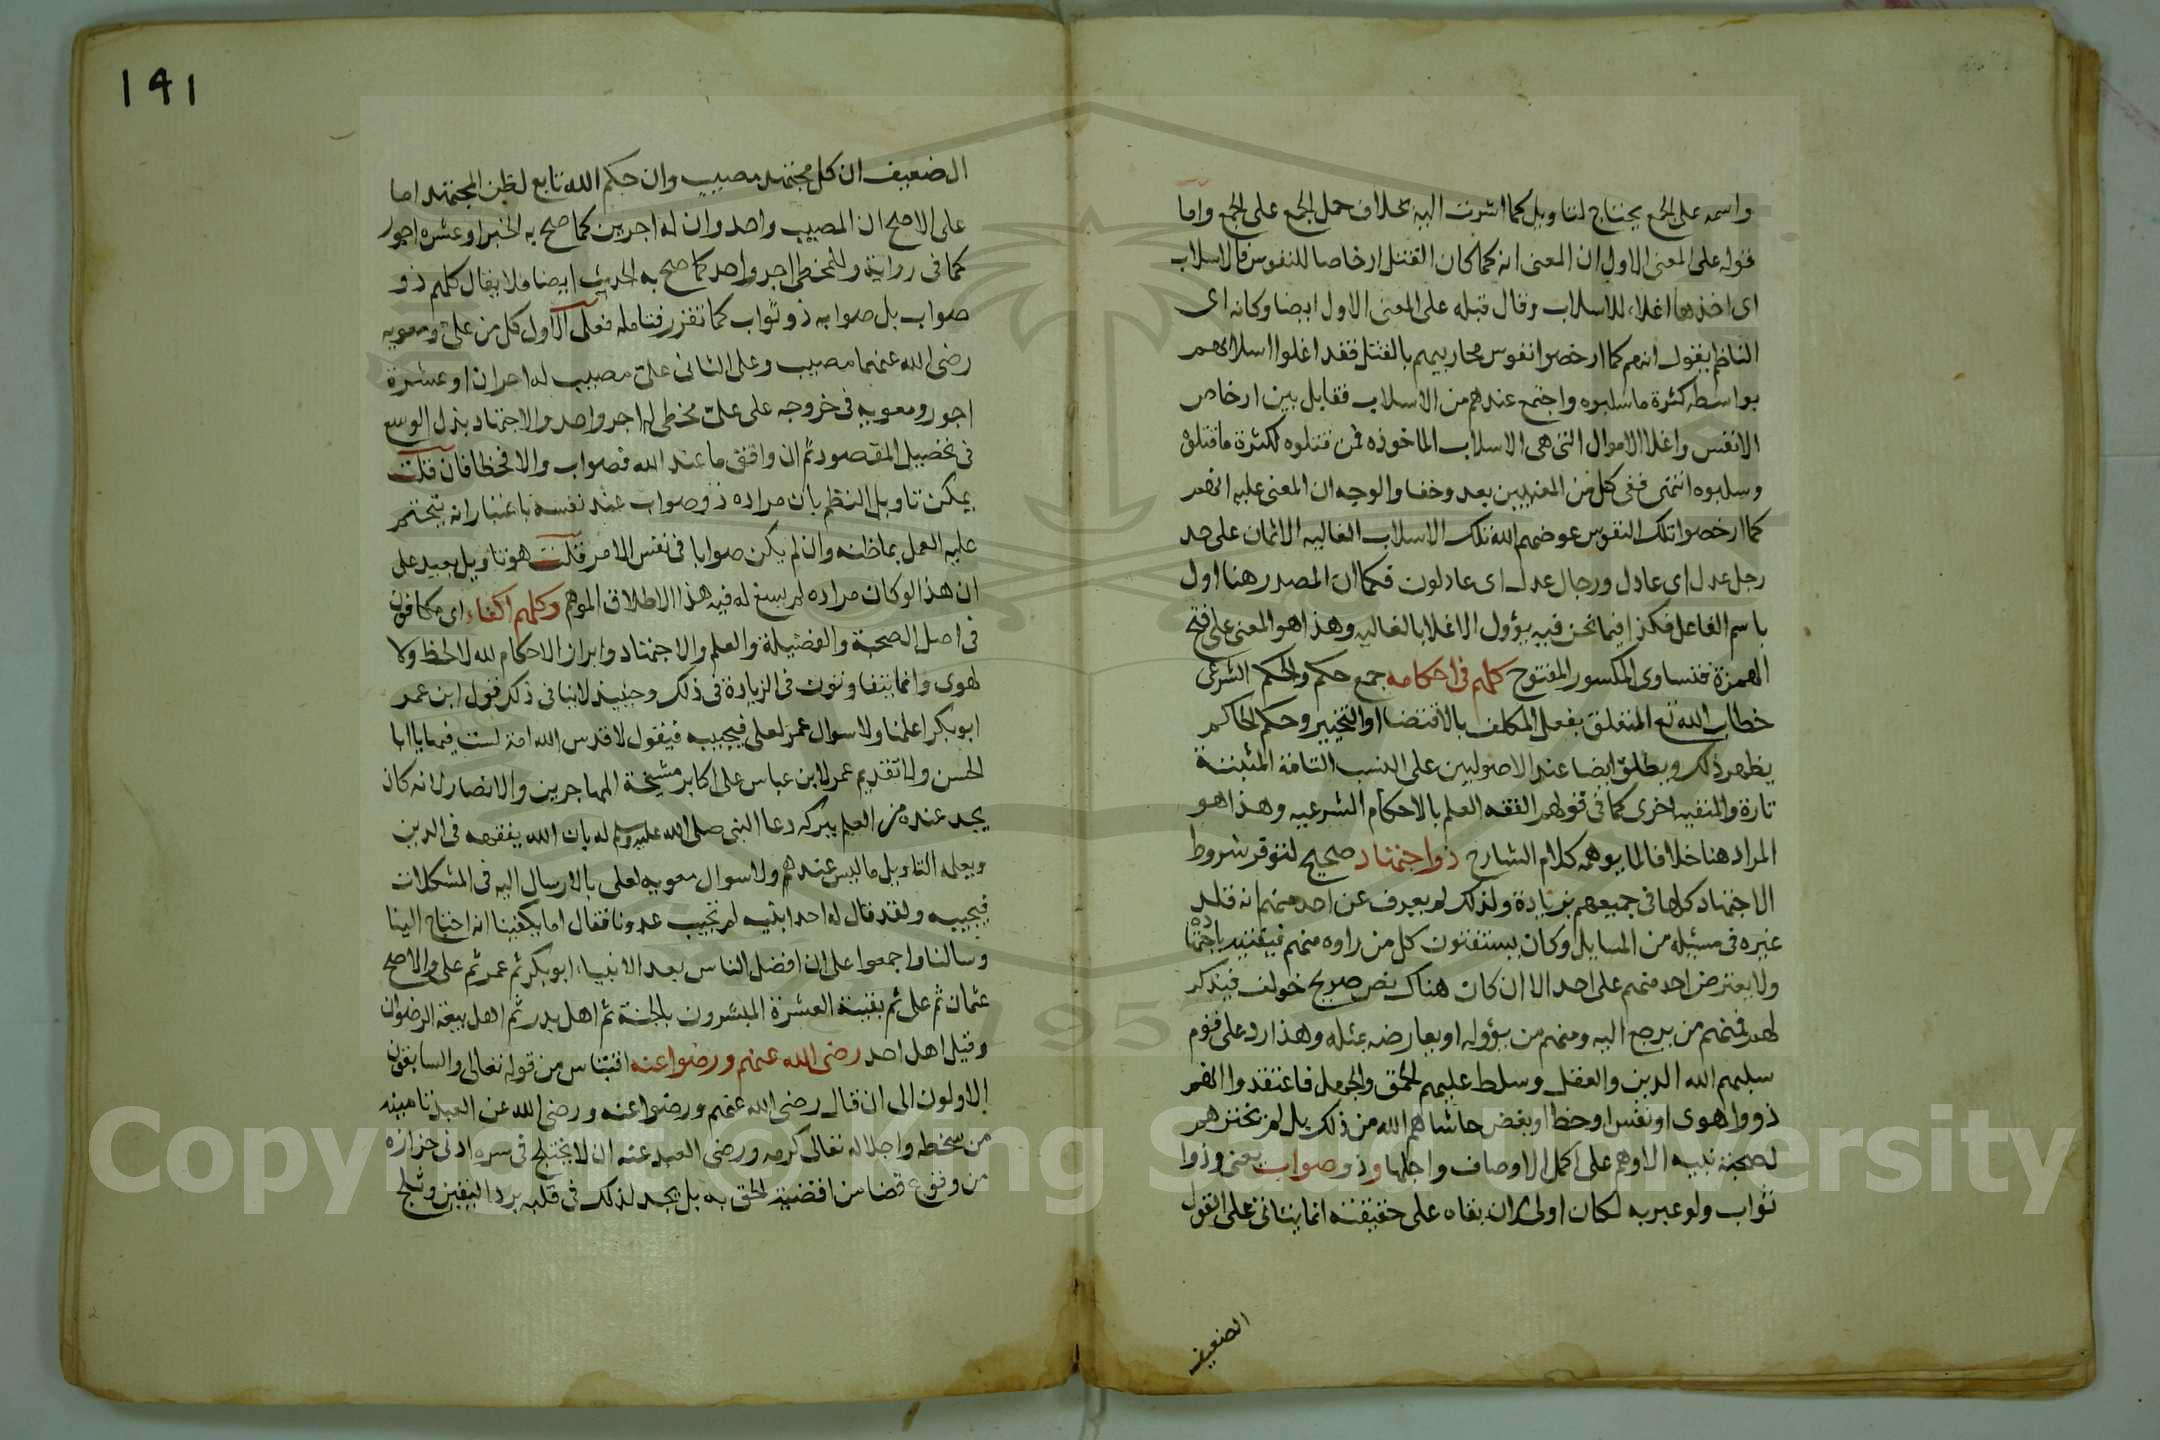 واسمه على الجمع يحتاج لتاويل كما اشرت اليه بخلاف حمل الجمع على الجمع واما
قوله على المعنى الاول ان المعنى انه كما كان القتل ارخاصا للنفوس فالاسلاب
اى اخذها اغلاء للاسلاب وقال قبله على المعنى الاول ايضا وكانه اى
الناظم يقول انهم كما ارخصوا نفوس محاربيهم بالقتل فقد اغلوا اسلابهم
بواسطة كثرة ما سلبوه واجتمع عندهم من الاسلاب فقابل بين ارخاص
الانفس واغلا الاموال التى هى الاسلاب الماخوذه ممن قتلوه لكثرة ما قتلوه
وسلبوه انتهى ففى كل من المعنيين بعد وخفا والوجه ان المعنى عليه انهم
كما ارخصوا تلك النفوس عوضهم الله تلك الاسلاب الغاليه الاثمان على حد
رجل عدل اى عادل ورجال عدل اى عادلون فكما ان المصدر هنا اول
باسم الفاعل فكذا فيما نحن فيه يؤول الاغلا بالغاليه وهذا هو المعنى على فتح
الهمزة فتساوى المكسور المفتوح كلهم فى احكامه جمع حكم والحكم الشرعى
خطاب الله تع المتعلق بفعل المكلف بالاقتضا او التخيير وحكم الحاكم
يظهر ذلك ويطلق ايضا عند الاصوليين على النسب التامة المثبتة
تارة والمنفيه اخرى كما فى قولهم الفقه العلم بالاحكام الشرعيه وهذا هو
المراد هنا خلافا لما يوهمه كلام الشارح ذو اجتهاد صحيح لتوفر شروط
الاجتهاد كلها فى جميعهم بزيادة ولذلك لم يعرف عن احد منهم انه قلد
غيره فى مسئلة من المسايل وكان يستفتون كل من راوه منهم فيفتيه باجتهاده
ولا يعترض احد منهم على احد الا ان كان هناك نص صريح خولف فيذكر
لهم فمنهم من يرجع اليه ومنهم من يؤوله او يعارضه بمثله وهذا رد على قوم
سلبهم الله الدين والعقل وسلط عليهم الحمق والجهل فاعتقدوا انهم
ذووا هوى او نفس او حظ او بغض حاشاهم الله من ذلك بل لم يختر هم
لصحبة نبيه الا وهم على اكمل الاوصاف واجلها وذو صواب يعنى وذوا
ثواب ولو عبر به لكان اولى لان بقاه على حقيقته انما يتاتى على القول
الضعيف
141
الضعيف ان كل مجتهد مصيب وان حكم الله تابع لظن المجتهد اما
على الاصح ان المصيب واحد وان له اجرين كما صح به الخبر او عشرة اجور
كما فى رواية وللمخطى اجر واحد كما صح به الحديث ايضا فلا يقال كلهم ذو
صواب بل صوابه ذو ثواب كما تقرر فتامله فعلى الاول كل من على ومعويه
رضى الله عنهما مصيب وعلى الثانى على مصيب له اجران او عشرة
اجور ومعويه فى خروجه على على مخطى له اجر واحد والاجتهاد بذل الوسع
فى تحصيل المقصود ثم ان وافق ما عند الله فصواب والا فخطا فان قلت
يمكن تاويل النظم بان مراده ذو صواب عند نفسه باعتبار انه يتحتم
عليه العمل بما ظنه وان لم يكن صوابا فى نفس الامر قلت هو تاويل بعيد على
ان هذا لو كان مراده لم يسغ له فيه هذا الاطلاق الموهم وكلهم اكفاء اى مكافون
فى اصل الصحبة والفضيلة والعلم والاجتهاد وابراز الاحكام لله لا لحظ ولا
لهوى وانما يتفاوتون فى الزيادة فى ذلك وحينيذ لاينافى ذلك قول ابن عمر
ابو بكر اعلمنا ولا سوال عمر لعلى فيجيبه فيقول لا قدس الله امة لست فيها يا ابا
الحسن ولا تقديم عمر لابن عباس على اكابر مشيخة المهاجرين والانصار لانه كان
يجد عنده من العلم ببركه دعا النبى صلى الله عليه وسلم له بان الله يفقهه فى الدين
ويعلمه التاويل ما ليس عندهم ولا سوال معويه لعلى بالارسال اليه فى المشكلات
فيجيبه ولقد قال له احد ابنيه لم تجيب عدونا فقال اما يكفينا انه احتاج الينا
وسالنا واجمعوا على ان افضل الناس بعد الانبياء ابو بكر ثم عمر ثم على والاصح
عثمان ثم على ثم بقية العشرة المبشرون بالجنة ثم اهل بدر ثم اهل بيعة الرضوان
وقيل اهل احد رضى الله عنهم ورضوا عنه اقتباس من قوله تعالى والسابقون
الاولون الى ان قال رضى الله عنهم ورضوا عنه ورضى الله عن العبد تامينه
من سخطه واجلاله تعالى كرمه ورضى العبد عنه ان لا يختلج فى سره ادنى حزازه
من وقوع قضا من اقضية الحق به بل يجد لذلك فى قلبه برد اليقين وثلج
Copyright © King Saud University
1957